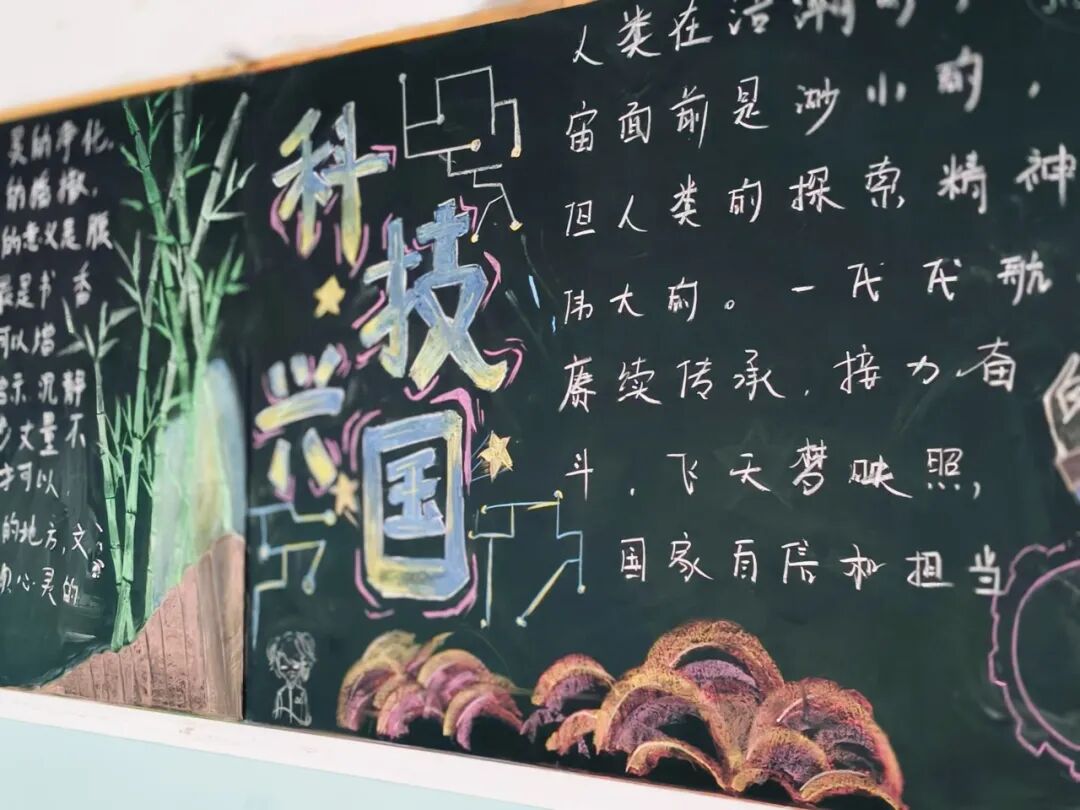 灵的净化,
的播撒,
的意义是腹
最是书香
可以增
示,沉静
步丈量不
才可以,
的地方,文
心灵的
科
技
兴国
人类在浩瀚的
宙面前是渺小的,
但人类的探索精神
伟大的。一代代航
赓续传承,接力奋
斗,飞天梦映照,
国家自信和担当